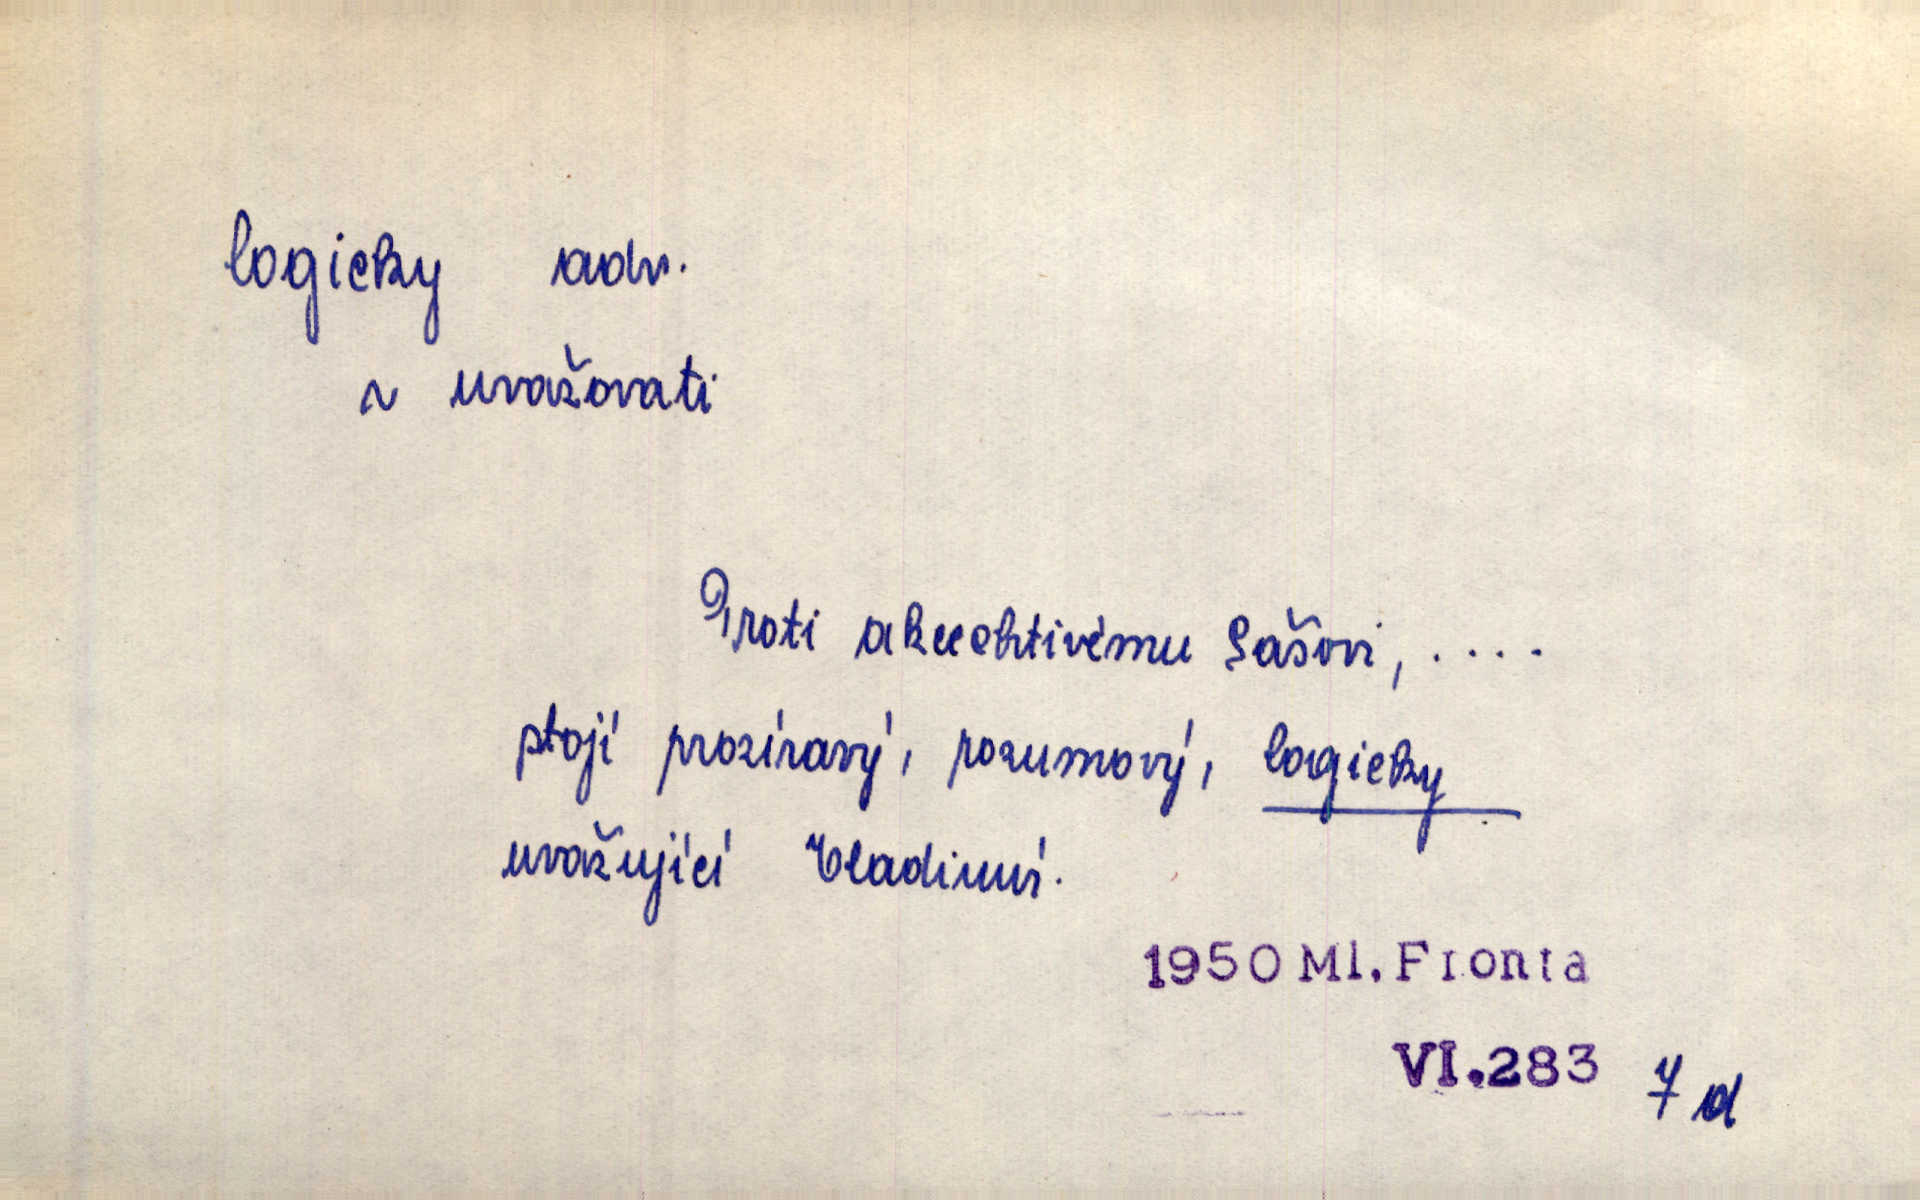 logicky adv.
~ uvažovati
Proti Sašovi, . . . .
stojí prozíravý, rozumový, logicky
uvažující Vladimír.
1950 Ml. Fronta
VI.283 7 d